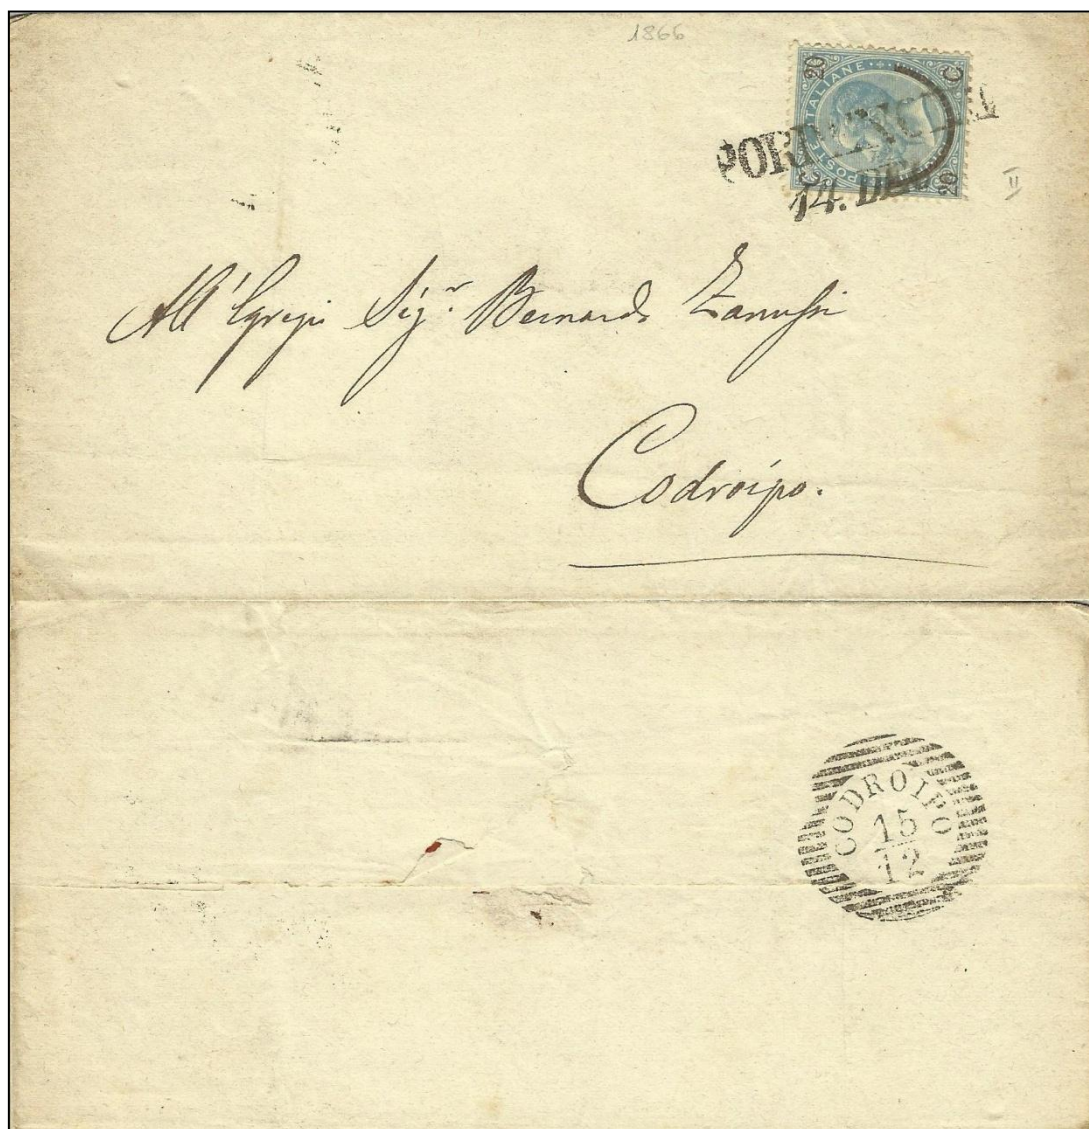 1866
20 C
POSTE ITALIANE
20
14. DEC
II
All' Egregio Sigr. Bernardo Zanussi
Codroipo.
CODROIPO
15
12